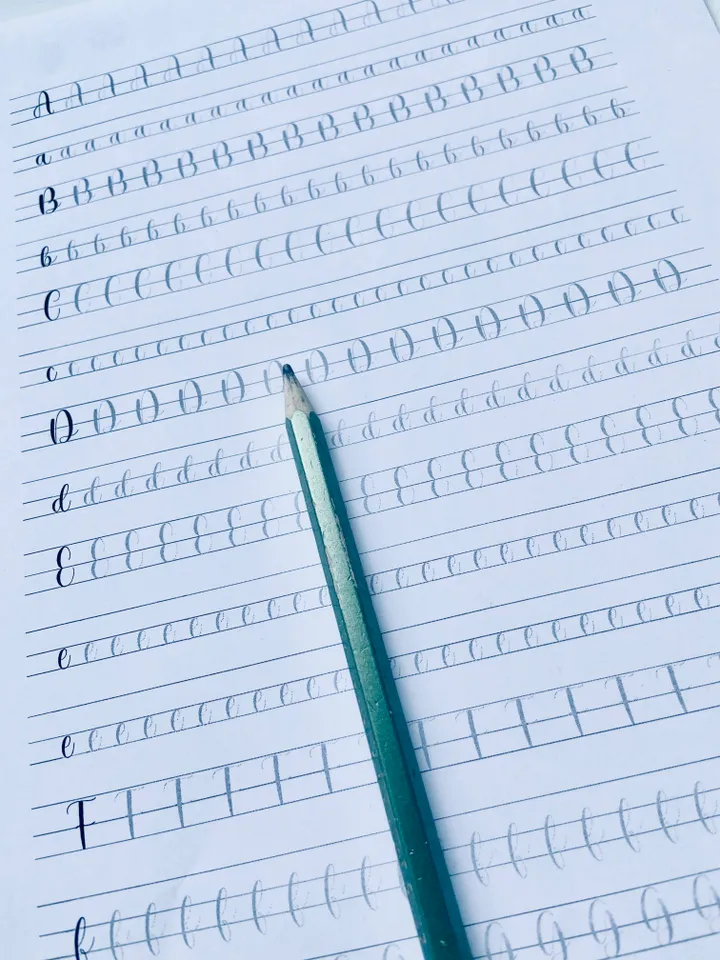 A A A A A A A A A A A A A
a a a a a a a a a a a a a a a a a a a a a a
B B B B B B B B B B B B B B B B
b b b b b b b b b b b b b b b b b b b b b b
C C C C C C C C C C C C C C C C C C C C
c c c c c c c c c c c c c c c c c c c c c c c c c c c c c
D D D D D D D D D D D D D D D
d d d d d d d d d d d d d d d d d d d d d
E E E E E E E E E E E E E E E E E E E
e e e e e e e e e e e e e e e e e e e e e e e e
e e e e e e e e e e e e e e e e e e e e e e e
F F F F F F F F F F F F
f f f f f f f f f f f f f f f f
G G G G G